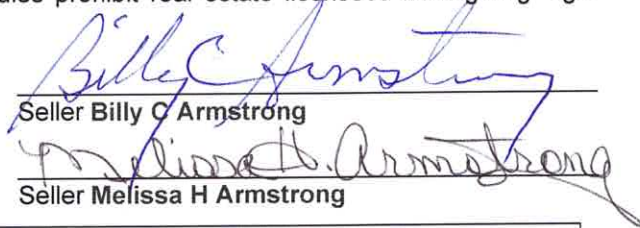 prohibit real estate
Billy C Armstrong
Seller Billy C Armstrong
Melissa H. Armstrong
Seller Melissa H Armstrong